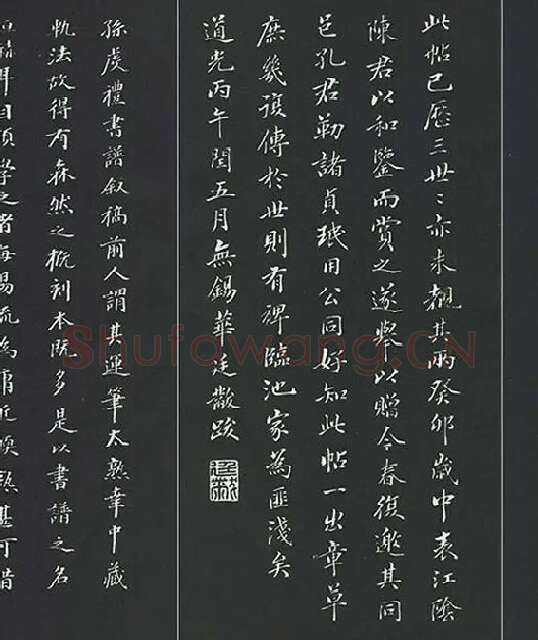 此帖已歷三世世亦未覯其兩癸卯歲中表江陰
陳君以和鑒而賞之遂舉以贈今春復邀其同
邑孔君勒諸貞珉用公同好知此帖一出章草
庶幾復傳於世則有裨臨池家為匪淺矣
道光丙午閏五月無錫華廷黻跋
孫虔禮書譜敘稿前人謂其運筆太熟幸中藏
軌法故得有森然之概刻本既多是以書譜之名
Shufawang.CN